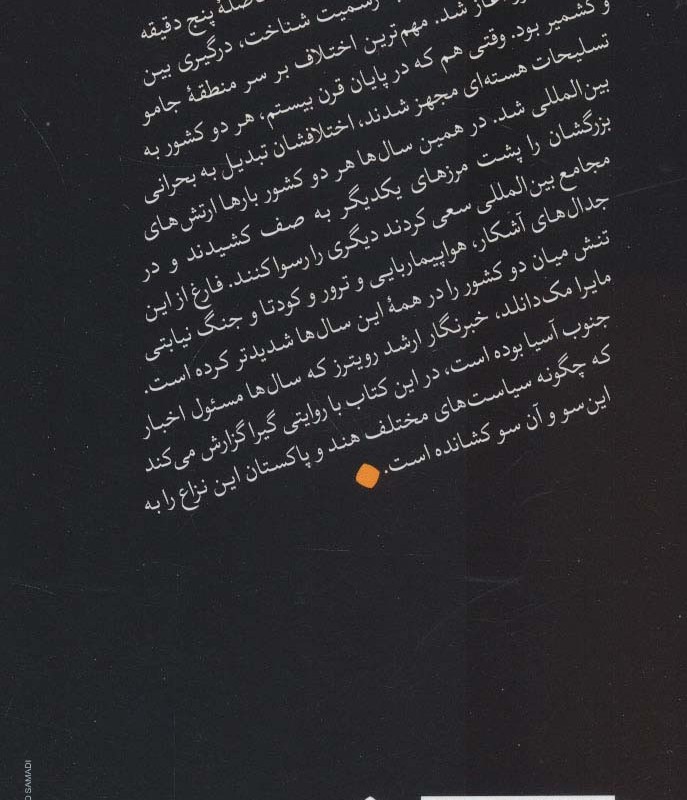 پنج دقیقه
رسمیت شناخت، درگیری بین
آغاز شد. مهم‌ترین اختلاف بر سر منطقهٔ جامو
و کشمیر بود. وقتی هم که در پایان قرن بیستم، هر دو کشور به
تسلیحات هسته‌ای مجهز شدند، اختلافشان تبدیل به بحرانی
بین‌المللی شد. در همین سال‌ها هر دو کشور بارها ارتش‌های
بزرگشان را پشت مرزهای یکدیگر به صف کشیدند و در
مجامع بین‌المللی سعی کردند دیگری را رسوا کنند. فارغ از این
جدال‌های آشکار، هواپیماربایی و ترور و کودتا و جنگ نیابتی
تنش میان دو کشور را در همهٔ این سال‌ها شدیدتر کرده است.
مایرا مک‌دانلد، خبرنگار ارشد رویترز که سال‌ها مسئول اخبار
جنوب آسیا بوده است، در این کتاب با روایتی گیرا گزارش می‌کند
که چگونه سیاست‌های مختلف هند و پاکستان این نزاع را به
این سو و آن سو کشانده است.
SAMADI